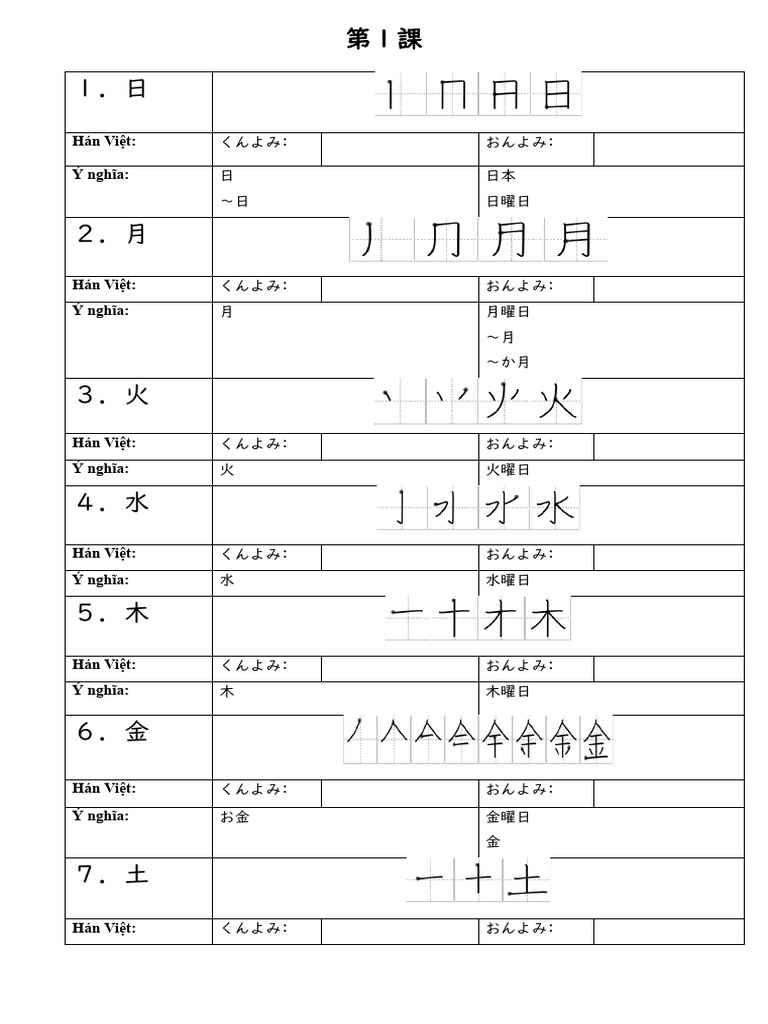 第１課
１．日
Hán Việt: くんよみ: おんよみ:
Ý nghĩa: 日 日本
～日 日曜日
２．月
Hán Việt: くんよみ: おんよみ:
Ý nghĩa: 月 月曜日
～月
～か月
３．火
Hán Việt: くんよみ: おんよみ:
Ý nghĩa: 火 火曜日
４．水
Hán Việt: くんよみ: おんよみ:
Ý nghĩa: 水 水曜日
５．木
Hán Việt: くんよみ: おんよみ:
Ý nghĩa: 木 木曜日
６．金
Hán Việt: くんよみ: おんよみ:
Ý nghĩa: お金 金曜日
金
７．土
Hán Việt: くんよみ: おんよみ: